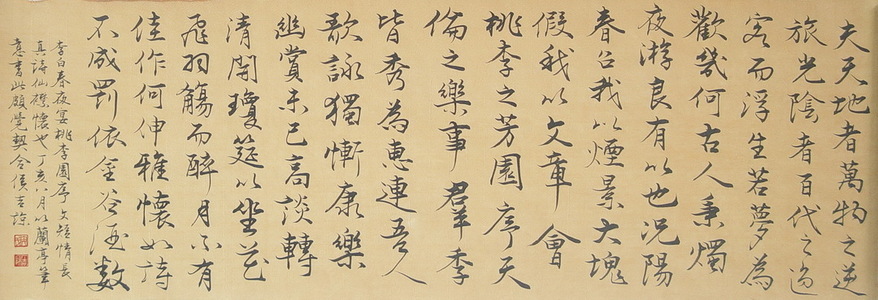 夫天地者萬物之逆
旅光陰者百代之過
客而浮生若夢為
歡幾何古人秉燭
夜游良有以也況陽
春召我以煙景大塊
假我以文章會
桃李之芳園序天
倫之樂事群季
皆秀為惠連吾人
歌詠獨慚康樂
幽賞未已高談轉
清開瓊筵以坐花
飛羽觴而醉月不有
佳作何伸雅懷如詩
不成罰依金谷酒數
李白春夜宴桃李園序文短情長
真詩仙襟懷也丁亥八月以蘭亭筆
意書此頗覺契合侯吉諒